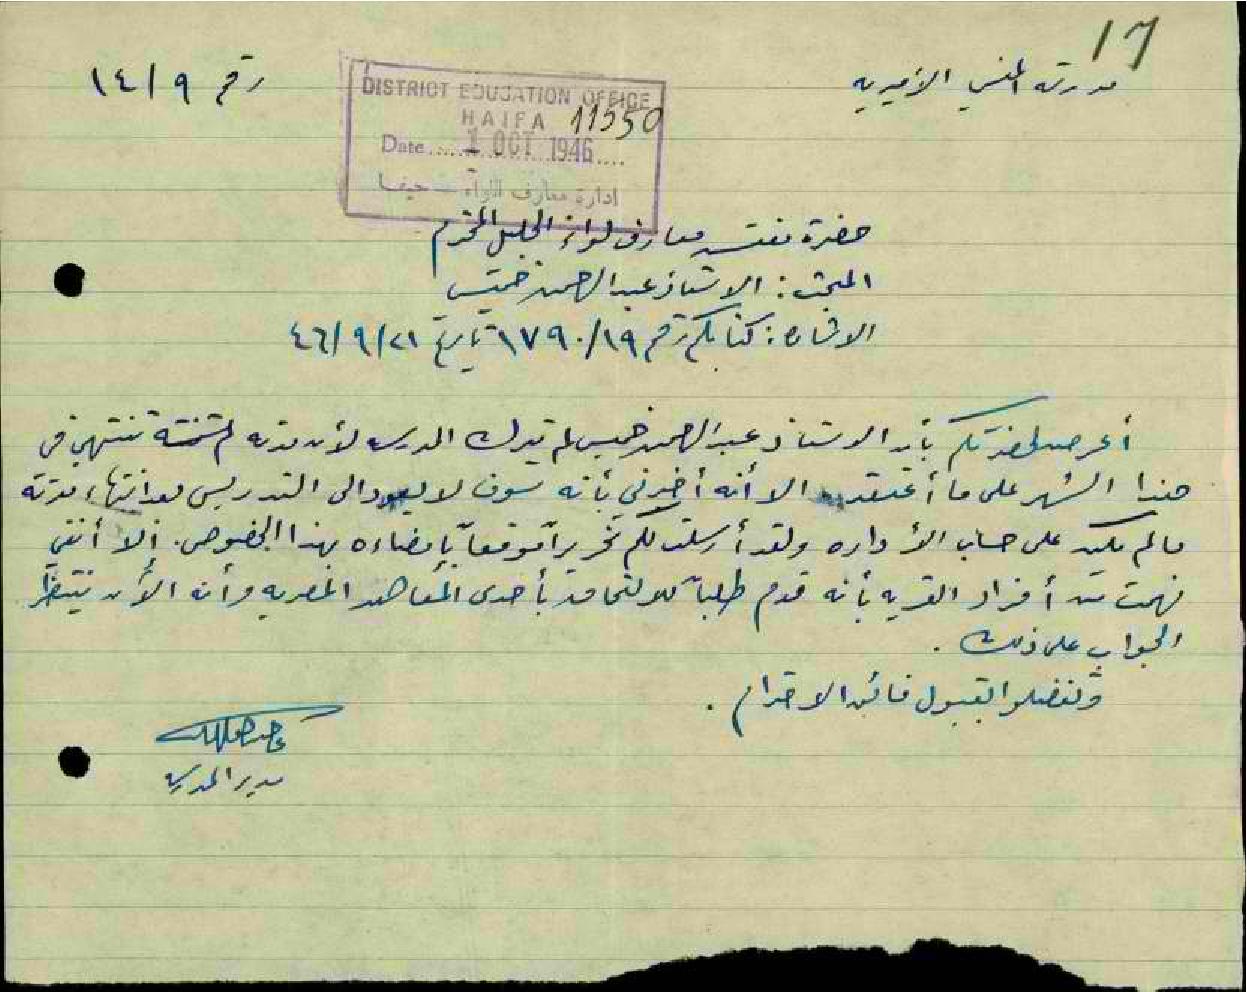 17
مدرسة المنسي الاميرية
رقم ١٤/٩
DISTRICT EDUCATION OFFICE
HAIFA 11550
Date 1 OCT 1946
ادارة معارف اللواء - حيفا
حضرة مفتش معارف لواء الجليل المحترم
المبحث: الاستاذ عبد الرحمن خميس
الاشاره: كتابكم رقم ١٧٩٠/١٩ تاريخ ٤٦/٩/٢١
أعرض لحضرتكم بأن الاستاذ عبد الرحمن خميس لم يترك المدرسه لأن مدته لم تنتهي في
هذا الشهر على ما أعتقد الا أنه أخبرني بأنه سوف لا يعود الى التدريس بعد انتهاء مدته
ما لم يكن على حساب الأداره ولقد أرسلت لكم تحريراً موقعاً بإمضاءه بهذا الخصوص. ألا أنني
فهمت من أفراد القريه بأنه قدم طلباً للالتحاق بأحدى المعاهد المصريه وأنه الأن ينتظر
الجواب على ذلك.
وتفضلوا بقبول فائق الاحترام.
مدير المدرسه